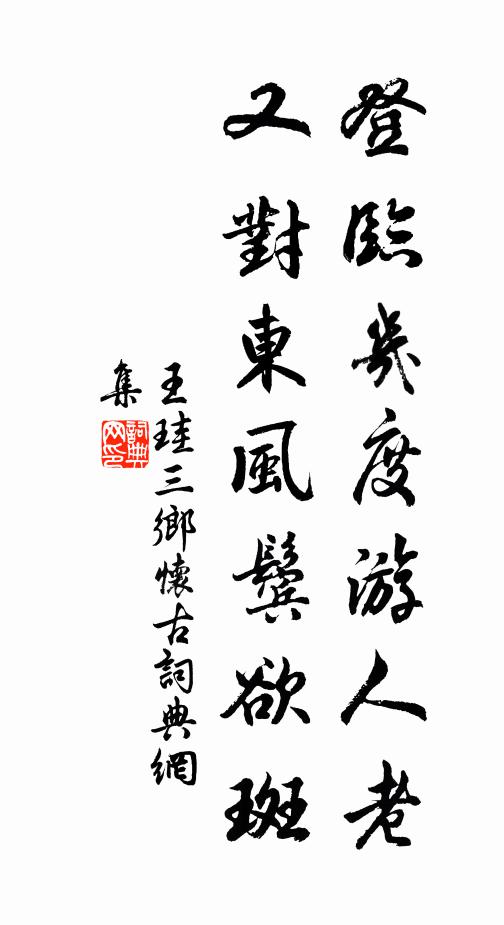 登臨幾度游人老
又對東風鬢欲斑
王珪三鄉懷古詞典網
集
詞典網印